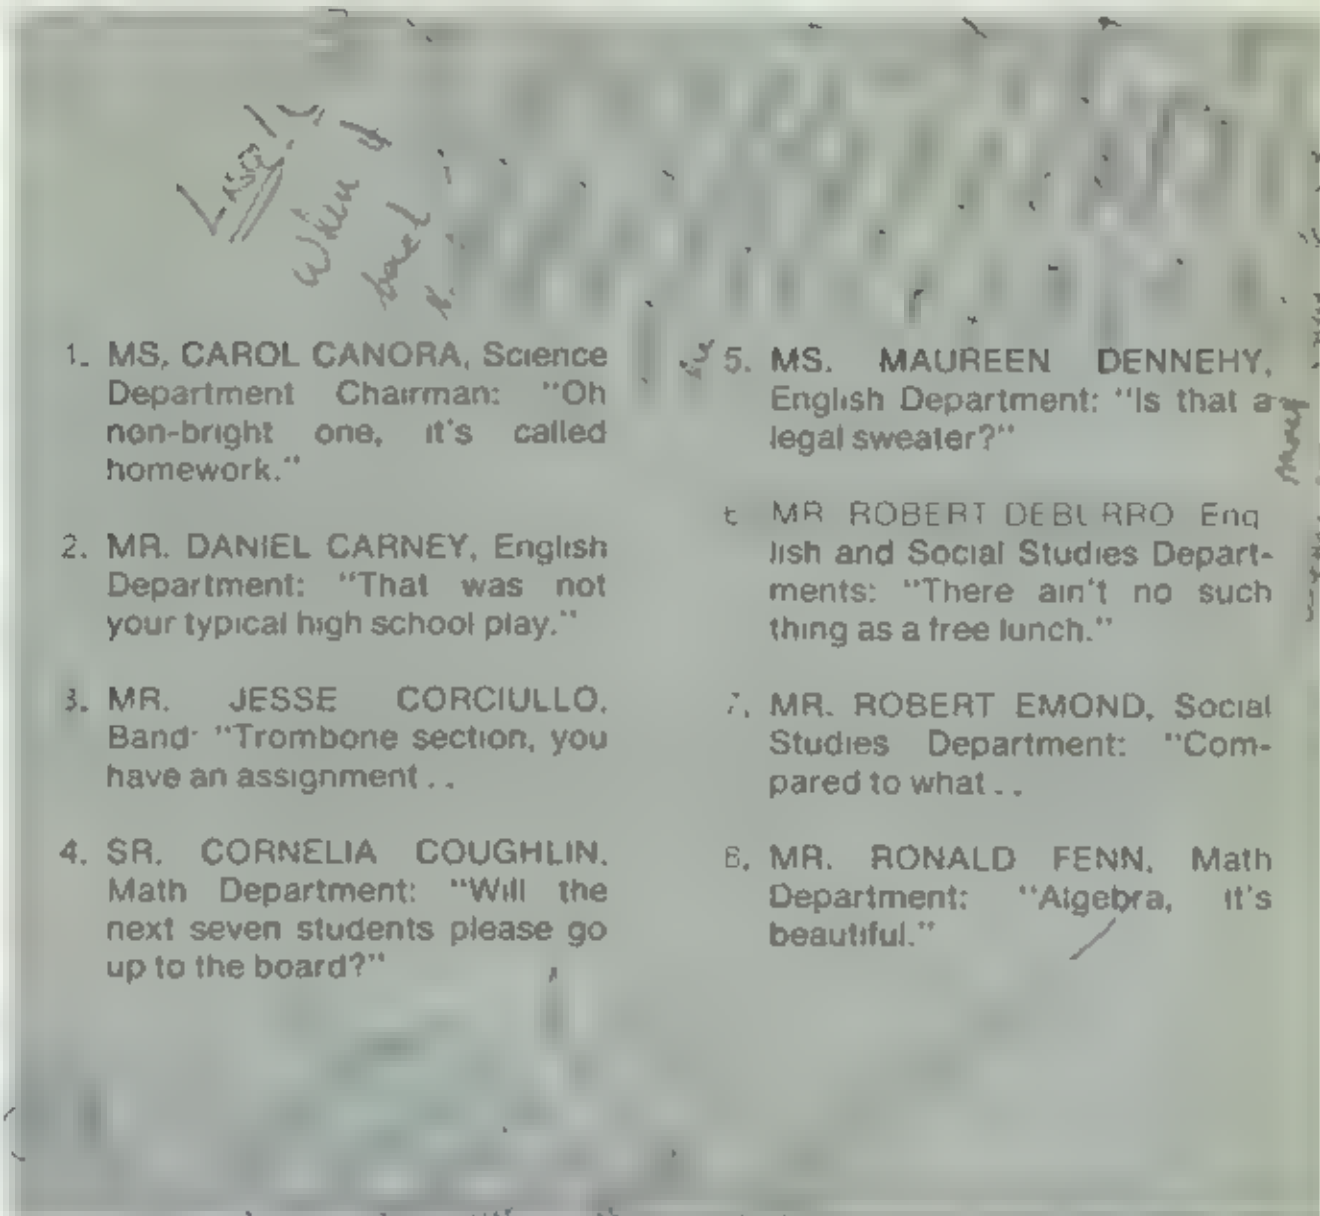 When I
1. MS. CAROL CANORA, Science
Department Chairman: "Oh
non-bright one, it's called
homework."
2. MR. DANIEL CARNEY, English
Department: "That was not
your typical high school play."
3. MR. JESSE CORCIULLO,
Band: "Trombone section, you
have an assignment . .
4. SR. CORNELIA COUGHLIN,
Math Department: "Will the
next seven students please go
up to the board?"
5. MS. MAUREEN DENNEHY,
English Department: "Is that a
legal sweater?"
MR ROBERT Eng
lish and Social Studies Depart-
ments: "There ain't no such
thing as a free lunch."
7. MR. ROBERT EMOND, Social
Studies Department: "Com-
pared to what . .
8. MR. RONALD FENN, Math
Department: "Algebra, it's
beautiful."